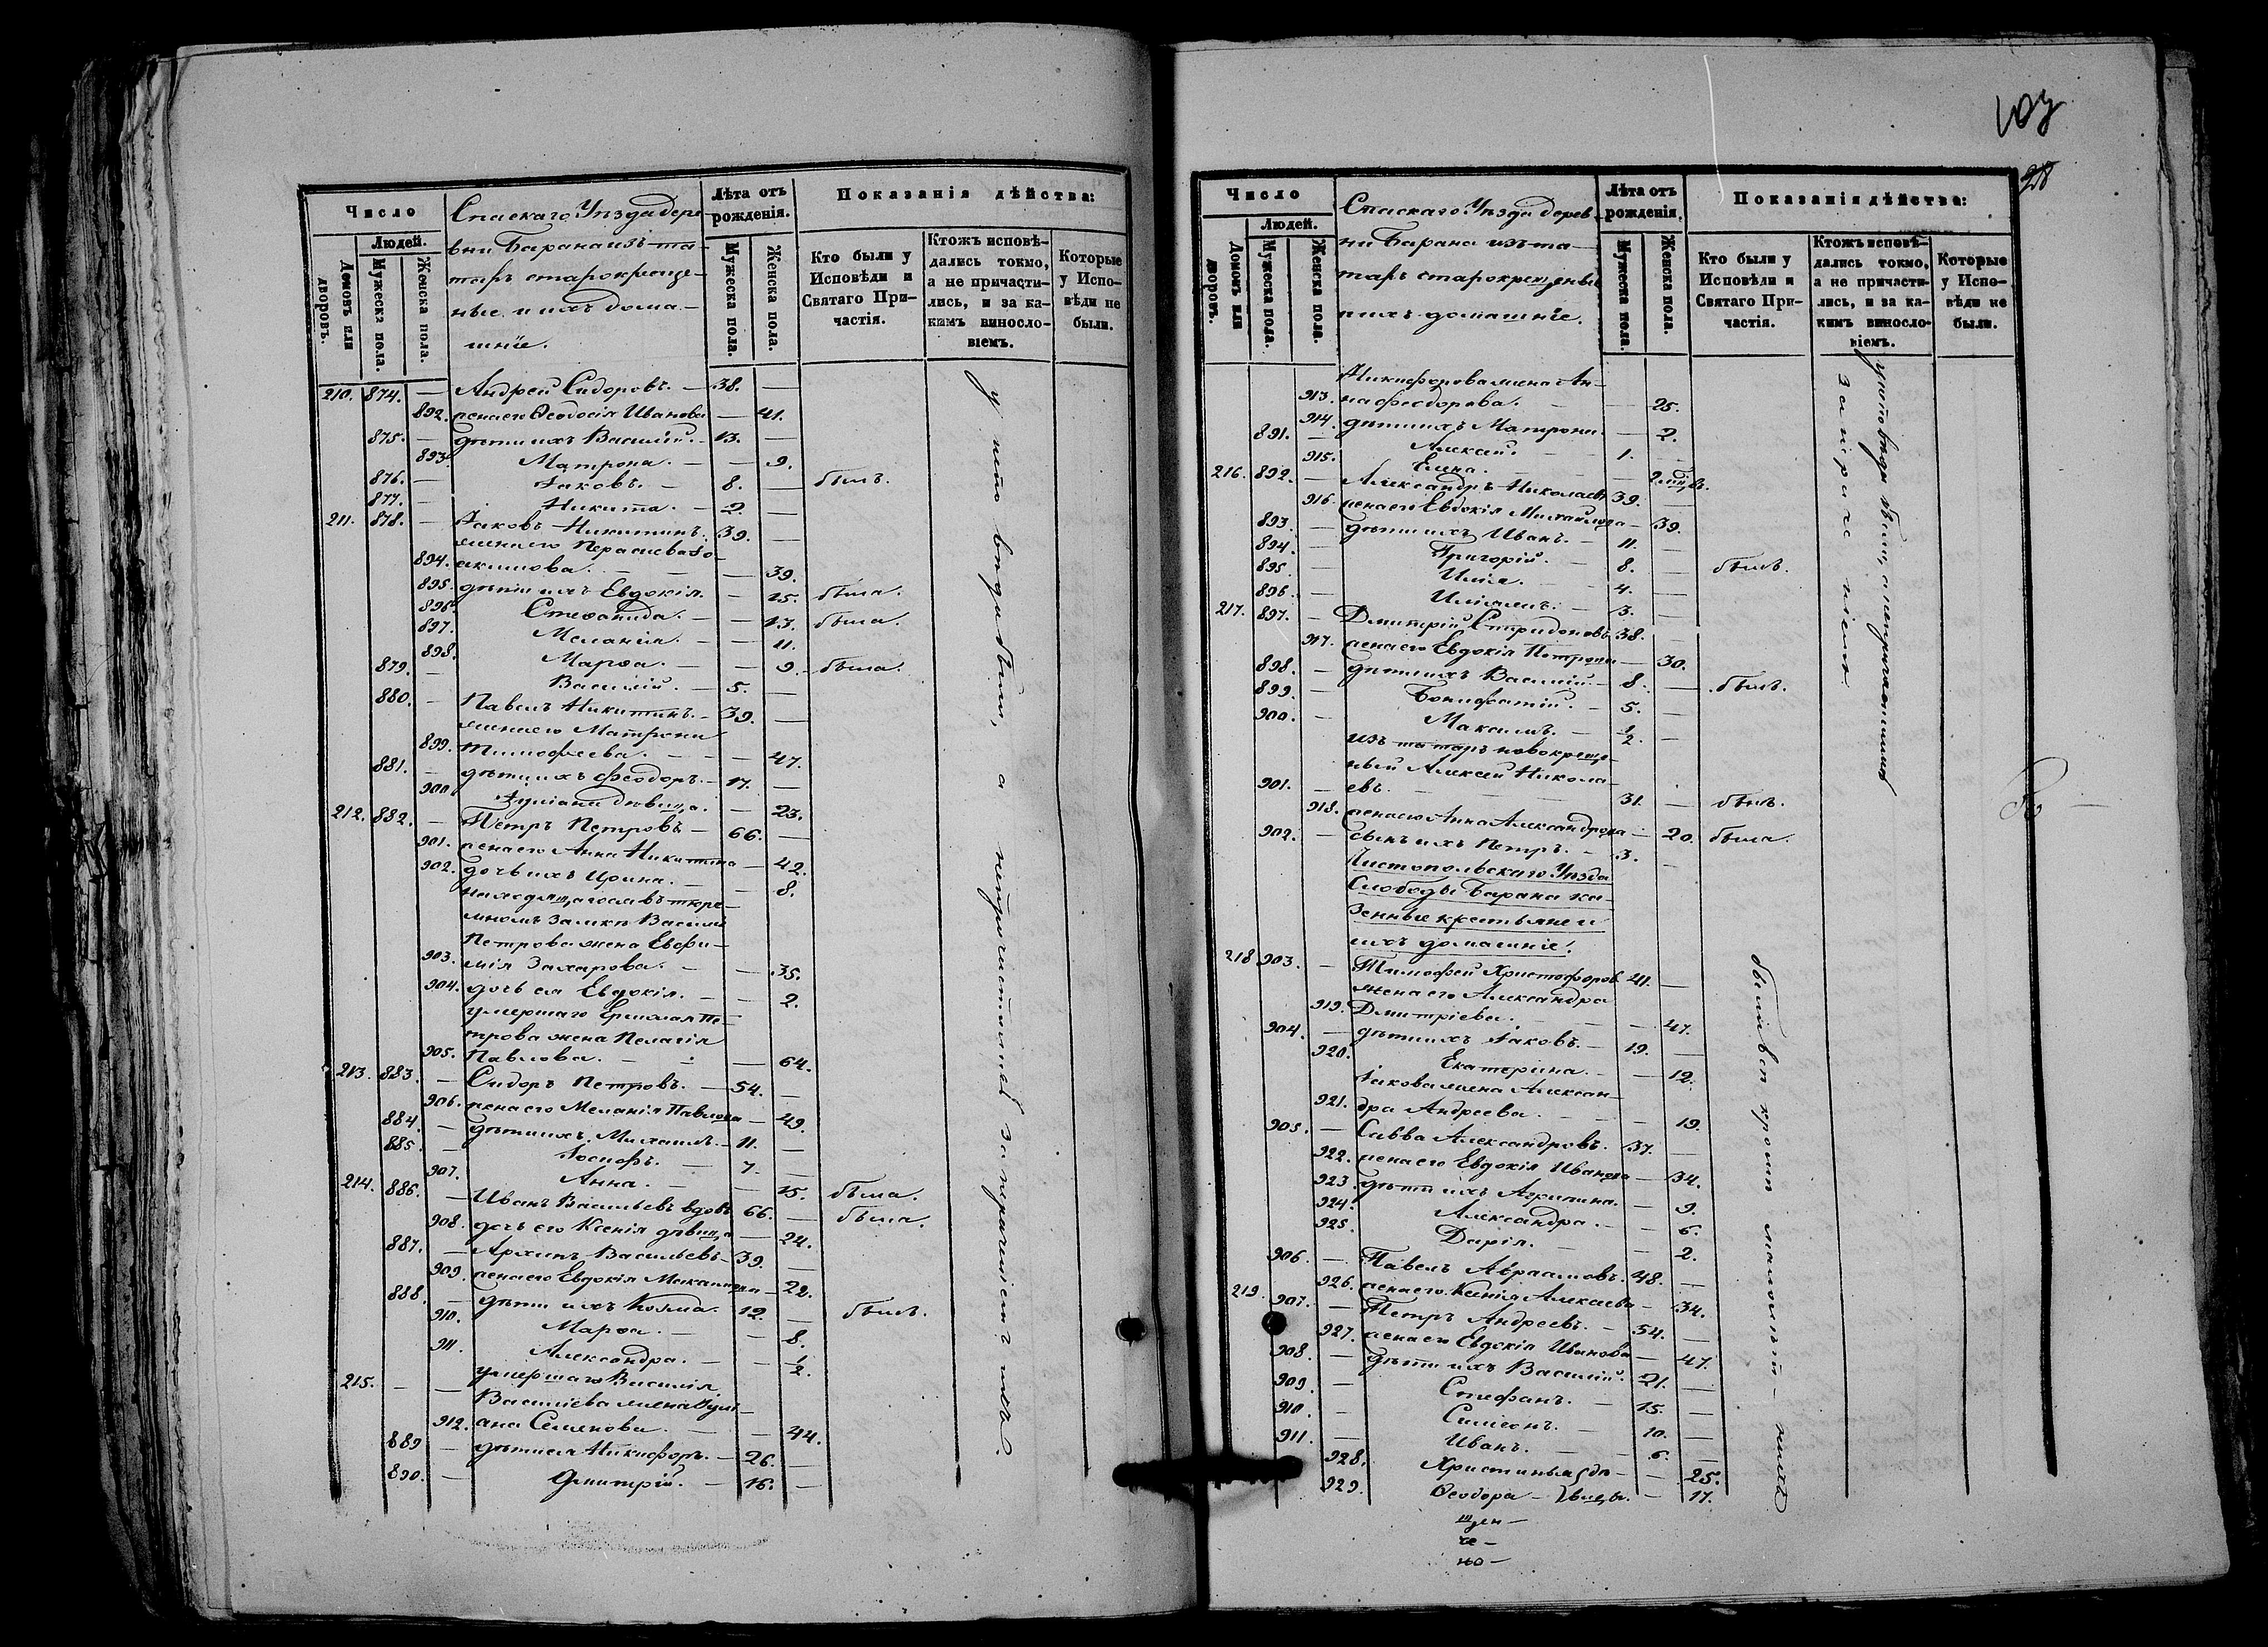 Число
Людей.
Домовъ или дворовъ.
Мужеска пола.
Женска пола.
Спаскаго Уѣзда дере-
вни Барана изъ та-
таръ старокреще-
ные и ихъ дома-
шніе.
Лѣта отъ рожденія.
Мужеска пола.
Женска пола.
Показанія дѣйства:
Кто были у Исповѣди и Святаго При-частія.
Ктожъ исповѣ-дались токмо, а не причасти-лись, и за ка-кимъ виносло-віемъ.
Которые у Испо-вѣди не были.
210. 874. — Андрей Сидоровъ. — 38. —
892. жена его Ѳеодосія Иванова — 41.
875. — дѣти ихъ Василій. — 13. —
893. Матрона. — — 9.
876. — Іаковъ. — 8. — былъ.
877. — Никита. — 2. —
211. 878. — Іаковъ Никитинъ. 39. —
жена его Параскева Іо-
894. акимова. — — 39.
895. дѣти ихъ Евдокія. — 15. была.
896. Стефанида. — — 13. была.
897. Меланія. — 11.
898. Марѳа. — — 9. была.
879. — Василій. — 5. —
880. — Павелъ Никитинъ. — 39. —
жена его Матрона
899. Тимофеева. — — 47.
881. — дѣти ихъ Феодоръ. — 17. —
900. Іуліания дѣвица. — 23.
212. 882. — Петръ Петровъ — 66. —
901. жена его Анна Никитина — 42.
902. дочь ихъ Ирина. — — 8.
находящагося въ тюре-
мномъ замкѣ Василія
Петрова жена Евфи-
903. мія Захарова. — — 35.
904. дочь ея Евдокія. — — 2.
умершаго Ермолая Пе-
трова жена Пелагія
905. Павлова. — — 64.
213. 883. — Сидоръ Петровъ. — 54. —
906. жена его Меланія Павлова — 49.
884. — дѣти ихъ Михаилъ. — 11. —
885. — Іосифъ. — 7. —
907. Анна. — — 15. была.
214. 886. — Иванъ Васильевъ вдовъ 66. — была.
908. дочь его Ксенія дѣвица — 24.
887. — Архипъ Васильевъ — 39. —
909. жена его Евдокія — 22.
888. — дѣти ихъ Козма. 12. — былъ.
910. Марѳа. — — 8.
911. Александра. — — 1/2.
215. — — умершаго Василія
Василіева жена Іулі-
912. ана Семенова. — — 44.
889 — дѣти ея Никифоръ. — 26. —
890. — Дмитрій. — 16. —
у исповѣди были, а непричастились за нерачительствомъ.
103
Число
Людей.
Домовъ или дворовъ.
Мужеска пола.
Женска пола.
Спаскаго Уѣзда дерев-
ни Барана изъ та-
таръ старокрещеные
и ихъ домашніе.
Лѣта отъ рожденія.
Мужеска пола.
Женска пола.
Показанія дѣйства:
Кто были у Исповѣди и Святаго При-частія.
Ктожъ исповѣ-дались токмо, а не причасти-лись, и за ка-кимъ виносло-віемъ.
Которые у Испо-вѣди не были.
Никифорова жена Ан-
913. на Феодорова. — — 25.
914. дѣти ихъ Матрона. — 2.
891. — Алексій. — 1. —
915. Елена. — —
216. 892. — Александръ Николаевъ 39. —
916. жена его Евдокія Михайлова — 39.
893. — дѣти ихъ Иванъ. — 11. —
894. — Григорій. — 8. — былъ.
895. — Илія. — 4. —
896. — — 3. —
217. 897. — Димитрій Спиридоновъ 38. —
917. жена его Евдокія Петрова — 30.
898. — дѣти ихъ Василій. — 8. — былъ.
899. — Бонифатій. — 5. —
900. — Максимъ. — 1/2 —
изъ татаръ новокреще-
ный Алексій Никола-
901. — евъ. 31. — былъ.
918. жена его Анна Александрова — 20. была.
902. — сынъ ихъ Петръ. — 3. —
Чистопольскаго Уѣзда
Слободы Барана ка-
зенные крестьяне и
ихъ домашніе.
218 903. — Тимофей Христофоров 41. —
жена его Александра
919. Дмитріева. — — 47.
904. — дѣти ихъ Іаковъ. — 19. —
920. Екатерина. — — 12.
Іакова жена Алексан-
921. дра Андреева. — — 19.
905. — Савва Александровъ. 37. —
922. жена его Евдокія Иванова — 34.
923. дѣти ихъ Агрипина. — 9.
924. Александра. — — 6.
925. Дарія. — — 2.
906. — Павелъ Авраамовъ. 48. —
926. жена его Ксенія Алексѣева — 34.
219. 907. — Петръ Андреевъ. — 54. —
927. жена его Евдокія Иванова — 47.
908. — дѣти ихъ Василій. 21. —
909. — Стефанъ. — 15. —
910. — Симеонъ. — 10. —
911. — Иванъ. — 6. —
928. Христинья дѣ- — 25.
929. Ѳеодора — вицы. — 17.
у исповѣди были, а непричастились
были всѣ кромѣ малолѣт-